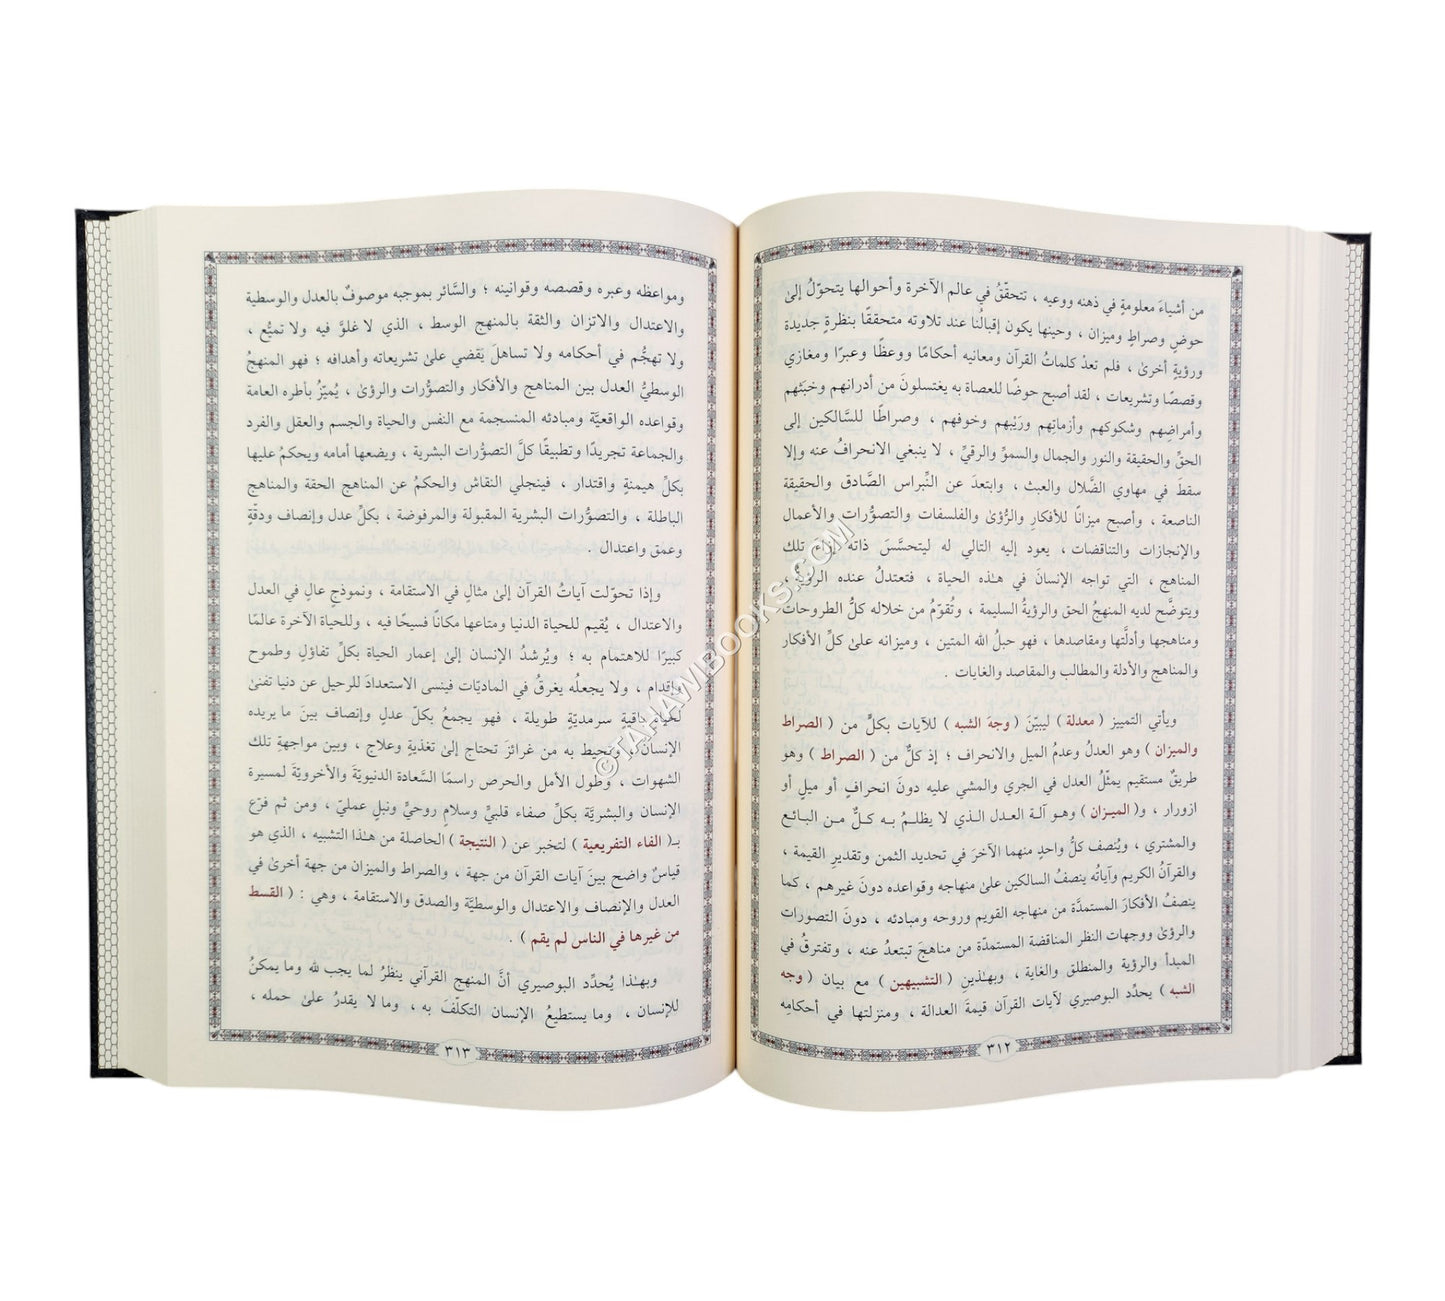 من أشياءَ معلومةٍ في ذهنه ووعيه ، تتحقّقُ في عالم الآخرة وأحوالها يتحوّلُ إلىٰ
حوضٍ وصراطٍ وميزان ، وحينها يكون إقبالُنا عند تلاوته متحققًا بنظرةٍ جديدة
ورؤيةٍ أخرىٰ ، فلم تعدْ كلماتُ القرآن ومعانيه أحكامًا ووعظًا وعبرًا ومغازي
وقصصًا وتشريعات ، لقد أصبح حوضًا للعصاة به يغتسلونَ من أدرانهم وخبَثهم
وأمراضِهم وشكوكهم وأزماتِهم ورَيْبهم وخوفهم ، وصراطًا للسَّالكين إلى
الحقِّ والحقيقة والنور والجمال والسموِّ والرقيِّ ، لا ينبغي الانحرافُ عنه وإلا
سقطَ في مهاوي الضَّلال والعبث ، وابتعدَ عن النِّبراس الصَّادق والحقيقة
الناصعة ، وأصبح ميزانًا للأفكارِ والرُّؤىٰ والفلسفات والتصوُّرات والأعمال
والإنجازات والتناقضات ، يعود إليه التالي له ليتحسَّسَ ذاته إزاء تلك
المناهج ، التي تواجه الإنسانَ في هـٰذه الحياة ، فتعتدلُ عنده الرؤيةُ ،
ويتوضَّح لديه المنهجُ الحق والرؤيةُ السليمة ، وتُقوّمُ من خلاله كلُّ الطروحات
ومناهجها وأدلَّتها ومقاصدها ، فهو حبلُ الله المتين ، وميزانه علىٰ كلِّ الأفكار
والمناهج والأدلة والمطالب والمقاصد والغايات .
ويأتي التمييز ( معدلة ) ليبيّنَ ( وجهَ الشبه ) للآيات بكلٍّ من ( الصراط
والميزان ) وهو العدلُ وعدمُ الميل والانحراف ؛ إذ كلٌّ من ( الصراط ) وهو
طريقٌ مستقيم يمثّلُ العدل في الجري والمشي عليه دونَ انحرافٍ أو ميلٍ أو
ازورار ، و( الميـزان ) وهـو آلـة العـدل الـذي لا يظلـمُ بـه كـلٌّ مـن البـائـع
والمشتري ، ويُنصف كلُّ واحدٍ منهما الآخرَ في تحديد الثمن وتقديرِ القيمة ،
والقرآنُ الكريم وآياتُه ينصفُ السالكين علىٰ منهاجه وقواعده دونَ غيرهم ، كما
ينصفُ الأفكارَ المستمدَّة من منهاجه القويم وروحه ومبادئه ، دونَ التصورات
والرؤىٰ ووجهات النظر المناقضة المستمدّة من مناهجَ تبتعدُ عنه ، وتفترقُ في
المبدأ والرؤية والمنطلق والغاية ، وبهـٰذينِ ( التشبيهين ) مع بيان ( وجه
الشبه ) يحدِّد البوصيري لآيات القرآن قيمةَ العدالة ، ومنزلتها في أحكامِه
٣١٢
ومواعظه وعبره وقصصه وقوانينه ؛ والسَّائر بموجبه موصوفٌ بالعدل والوسطية
والاعتدال والاتزان والثقة بالمنهج الوسط ، الذي لا غلوَّ فيه ولا تميُّع ،
ولا تهجُّم في أحكامه ولا تساهلَ يَقضي علىٰ تشريعاته وأهدافه ؛ فهو المنهجُ
الوسطيُّ العدل بين المناهج والأفكار والتصوُّرات والرؤىٰ ، يُميّزُ بأطره العامة
وقواعده الواقعيَّة ومبادئه المنسجمة مع النفس والحياة والجسم والعقل والفرد
والجماعة تجريدًا وتطبيقًا كلَّ التصوُّرات البشرية ، ويضعها أمامه ويحكمُ عليها
بكلِّ هيمنةٍ واقتدار ، فينجلي النقاش والحكمُ عن المناهج الحقة والمناهج
الباطلة ، والتصوُّرات البشرية المقبولة والمرفوضة ، بكلِّ عدل وإنصاف ودقّةٍ
وعمق واعتدال .
وإذا تحوّلت آياتُ القرآن إلىٰ مثالٍ في الاستقامة ، ونموذجٍ عالٍ في العدل
والاعتدال ، يُقيم للحياة الدنيا ومتاعها مكانًا فسيحًا فيه ، وللحياة الآخرة عالمًا
كبيرًا للاهتمام به ؛ ويُرشدُ الإنسان إلىٰ إعمار الحياة بكلِّ تفاؤل وطموح
وإقدام ، ولا يجعلُه يغرقُ في الماديّات فينسى الاستعدادَ للرحيل عن دنيا تفنىٰ
لحياةٍ باقيةٍ سرمديّةٍ طويلة ، فهو يجمعُ بكلّ عدلٍ وإنصاف بينَ ما يريده
الإنسان ، وتحيط به من غرائزَ تحتاج إلىٰ تغذيةٍ وعلاج ، وبين مواجهةِ تلك
الشهوات ، وطول الأمل والحرص راسمًا السَّعادة الدنيويّةَ والأخرويّةَ لمسيرة
الإنسان والبشريَّة بكلِّ صفاء قلبيٍّ وسلامٍ روحيٍّ ونبلٍ عمليّ ، ومن ثم فرّع
بـ( الفاء التفريعية ) لتخبرَ عن ( النتيجة ) الحاصلة من هـٰذا التشبيه ، الذي هو
قياسٌ واضح بينَ آيات القرآن من جهة ، والصراط والميزان من جهة أخرىٰ في
العدل والإنصاف والاعتدال والوسطيَّة والصدق والاستقامة ، وهي : ( القسط
من غيرها في الناس لم يقم ) .
وبهـٰذا يُحدِّد البوصيري أنَّ المنهج القرآني ينظرُ لما يجب لله وما يمكنُ
للإنسان ، وما يستطيعُ الإنسان التكلّفَ به ، وما لا يقدرُ علىٰ حمله ،
٣١٣
©TAHAWIBOOKS.COM